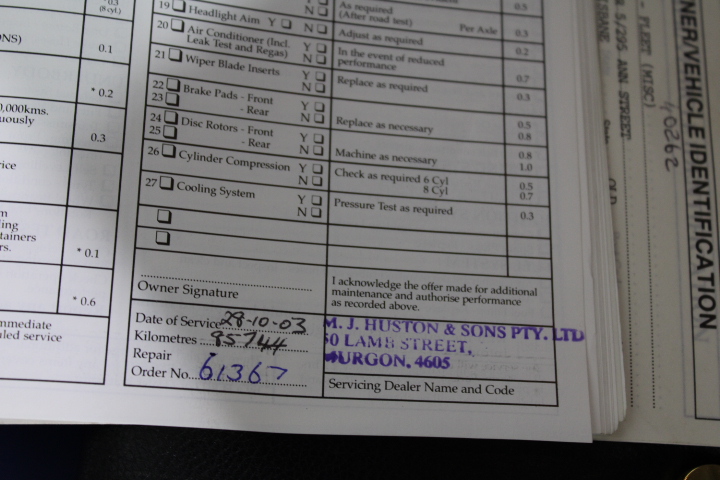 0.3
(8 cyl)
ONS)
0.1
* 0.2
0,000kms.
uously
0.3
* 0.1
* 0.6
mmediate
uled service
As required
(After road test)
0.3
19 Headlight Aim Y N
Adjust as required Per Axle 0.3
20 Air Conditioner (Incl. Leak Test and Regas) Y N
In the event of reduced performance 0.2
0.7
21 Wiper Blade Inserts Y N
Replace as required 0.3
22 Brake Pads - Front Y
23 - Rear N
Replace as necessary 0.5
0.8
24 Disc Rotors - Front Y
25 - Rear N
Machine as necessary 0.8
1.0
26 Cylinder Compression Y N
Check as required 6 Cyl 0.5
8 Cyl 0.7
27 Cooling System Y N
Pressure Test as required 0.3
Owner Signature
I acknowledge the offer made for additional
maintenance and authorise performance
as recorded above.
Date of Service 28-10-03
Kilometres 95744
Repair
Order No. 61367
M. J. HUSTON & SONS PTY. LTD
50 LAMB STREET,
MURGON. 4605
Servicing Dealer Name and Code
NER/VEHICLE IDENTIFICATION
40262
- FLEET (MISC)
5/295 ANN STREET